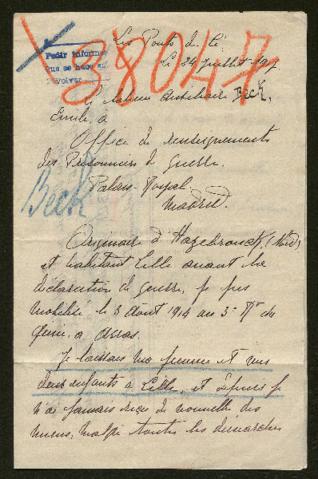 38047
Pedir informes
que se haga su
Les Ponts de Cé
le 24 Juillet 1917
Le Sapeur Auxiliaire Beck,
Emile à
Office de renseignements
des Prisonniers de Guerre.
Palais Royal
Madrid.
Beck
Originaire d'Hazebrouck (Nord)
et habitant Lille avant la
déclaration de guerre, je fus
mobilisé le 3 Août 1914 au 3e Rt du
Génie à Arras.
Je laissais ma femme et mes
deux enfants à Lille, et depuis je
n'ai jamais reçu de nouvelle des
miens, malgré toutes les démarches